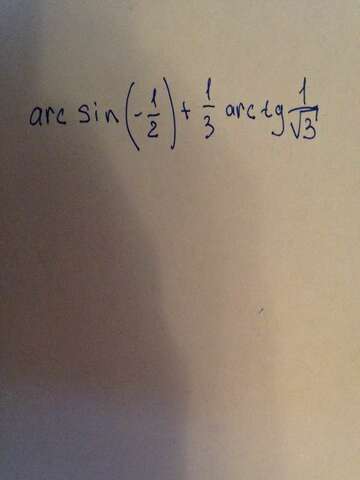 arc sin(-1/2) + 1/3 arctg 1/√3